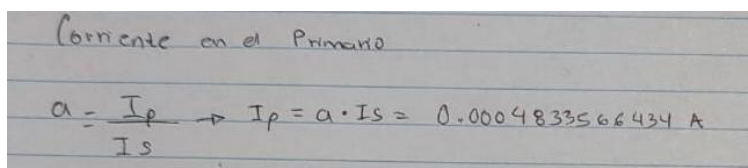 Corriente en el Primario
a = Ip / Is → Ip = a · Is = 0.0004833566434 A